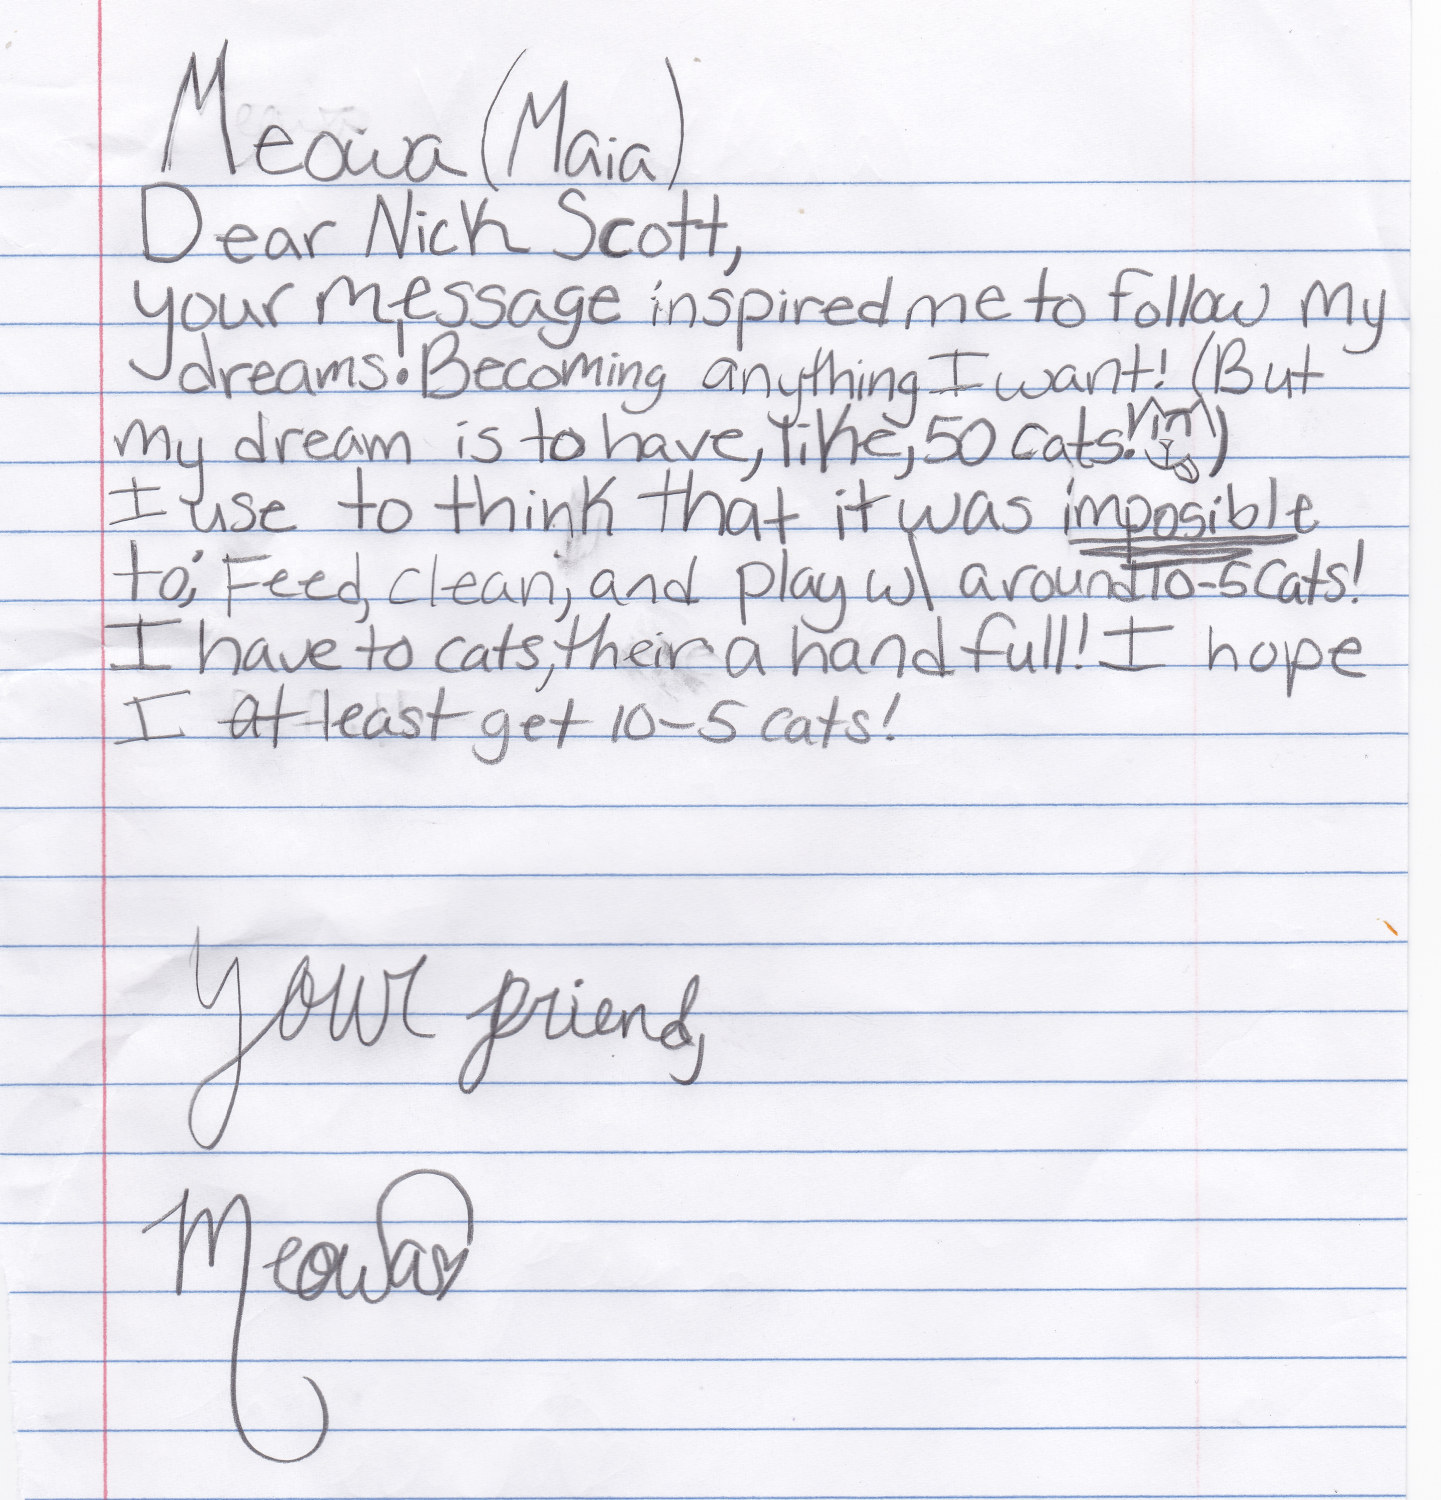 Meowa (Maia)
Dear Nick Scott,
your message inspired me to follow my
dreams! Becoming anything I want! (But
my dream is to have, like, 50 cats!)
I use to think that it was imposible
to; Feed, clean, and play w\ around 10-5 cats!
I have to cats, their a hand full! I hope
I at least get 10-5 cats!
your friend,
Meowa